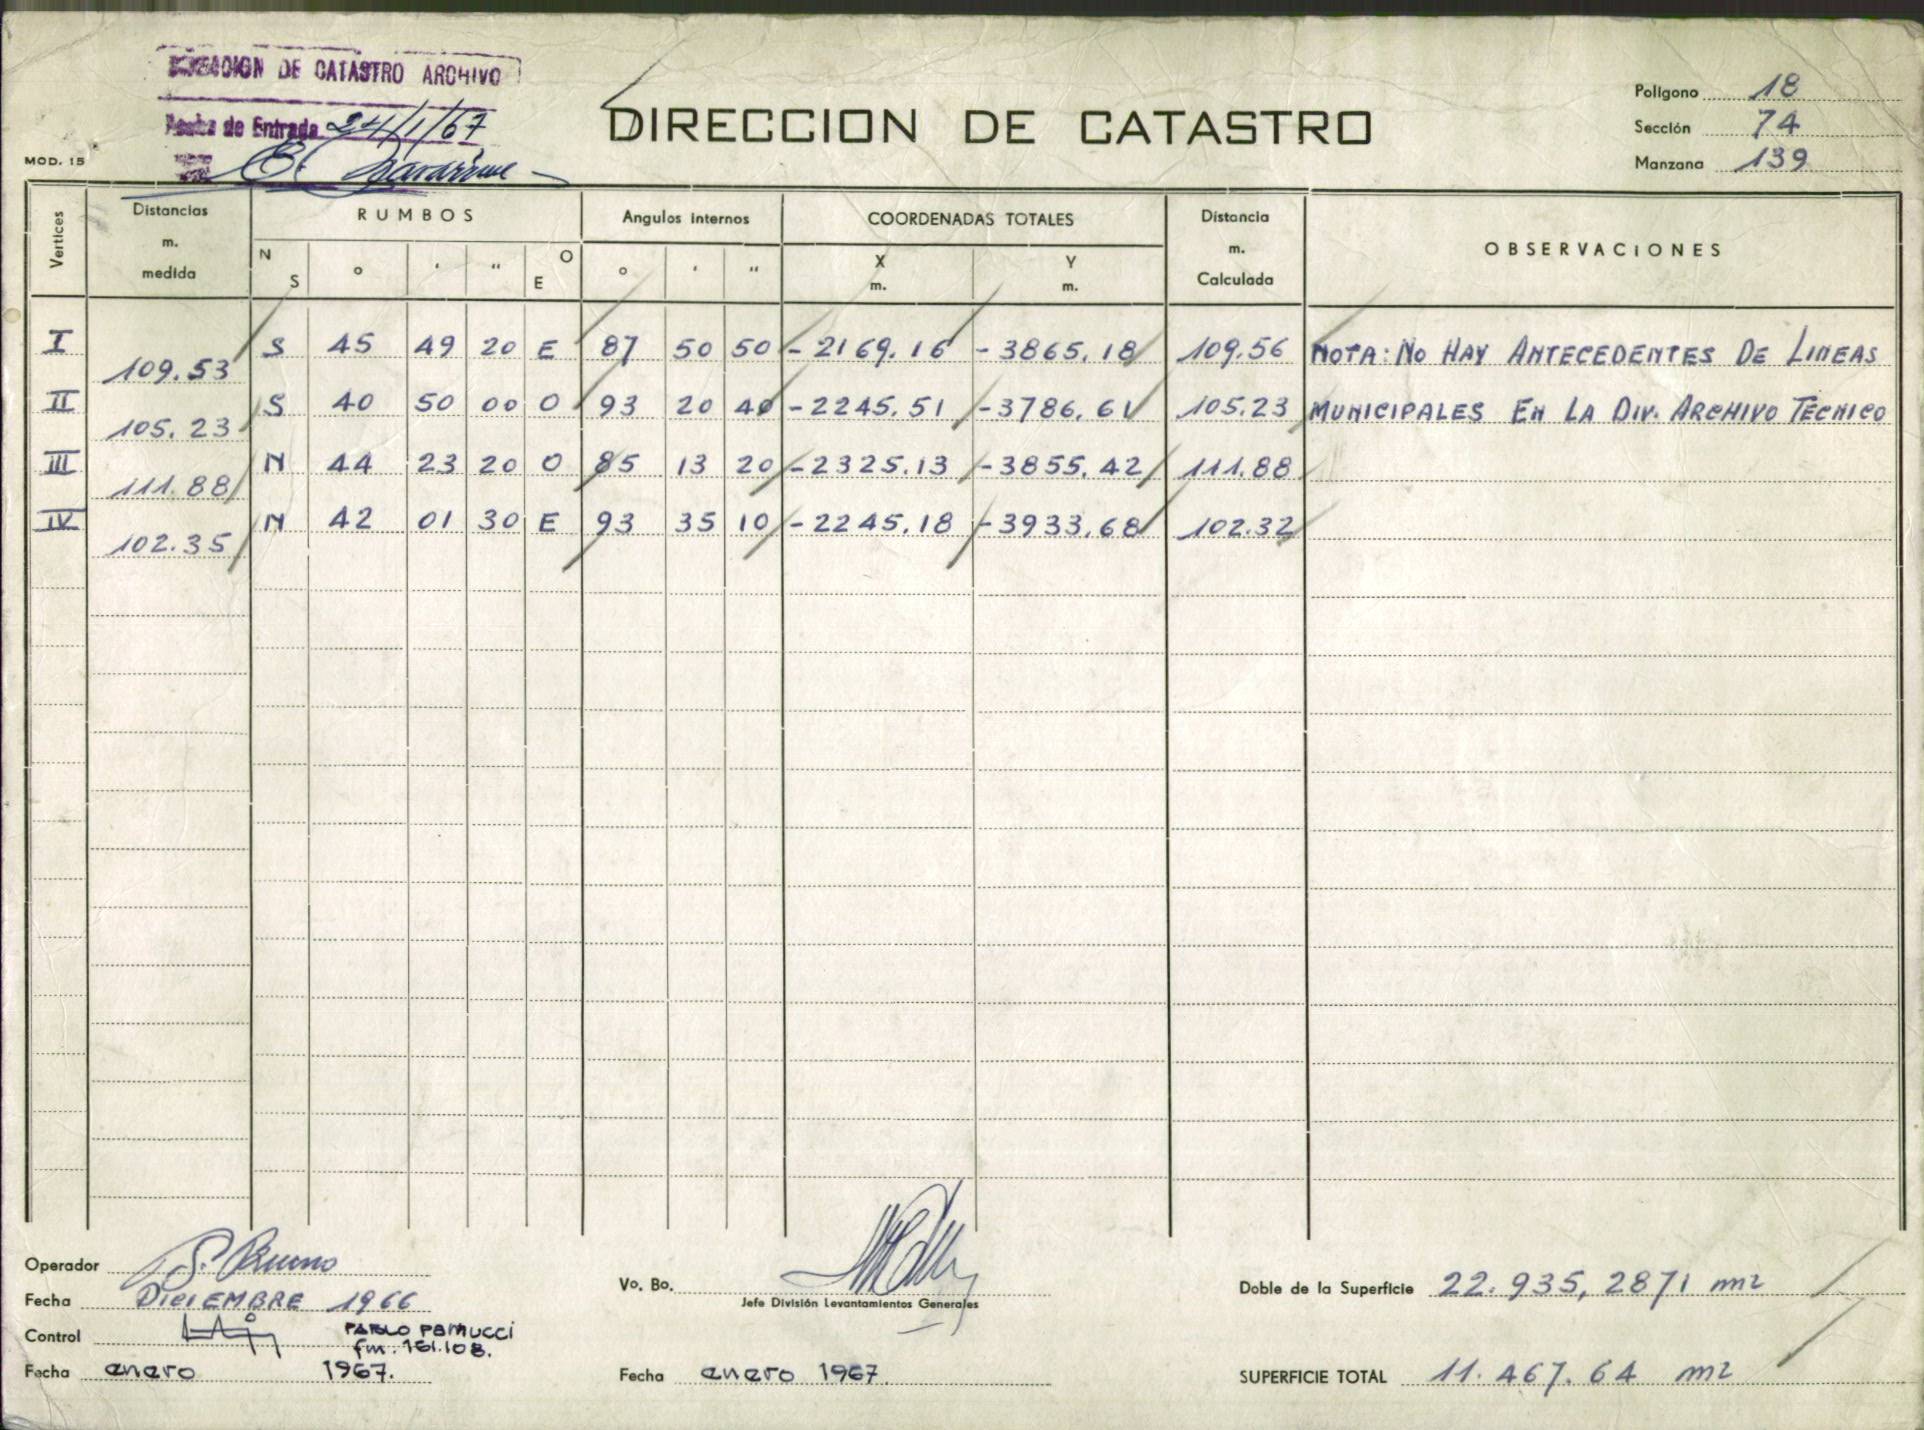 DIRECCION DE CATASTRO ARCHIVO
Fecha de Entrada 24/1/67
MOD. 15
DIRECCION DE CATASTRO
Polígono 18
Sección 74
Manzana 139
Vertices
Distancias m. medida
RUMBOS
N S ° ' " O E
Angulos internos
° ' "
COORDENADAS TOTALES
X m. Y m.
Distancia m. Calculada
OBSERVACIONES
I 109.53 S 45 49 20 E 87 50 50 -2169.16 -3865.18 109.56 NOTA: NO HAY ANTECEDENTES DE LINEAS
II 105.23 S 40 50 00 O 93 20 40 -2245.51 -3786.61 105.23 MUNICIPALES EN LA DIV. ARCHIVO TÉCNICO
III 111.88 N 44 23 20 O 85 13 20 -2325.13 -3855.42 111.88
IV 102.35 N 42 01 30 E 93 35 10 -2245.18 -3933.68 102.32
Operador S. Bruno
Fecha DICIEMBRE 1966
Control PABLO
fm. 161.108.
Fecha enero 1967.
Vo. Bo.
Jefe División Levantamientos Generales
Fecha enero 1967.
Doble de la Superficie 22.935,2871 m2
SUPERFICIE TOTAL 11.467.64 m2